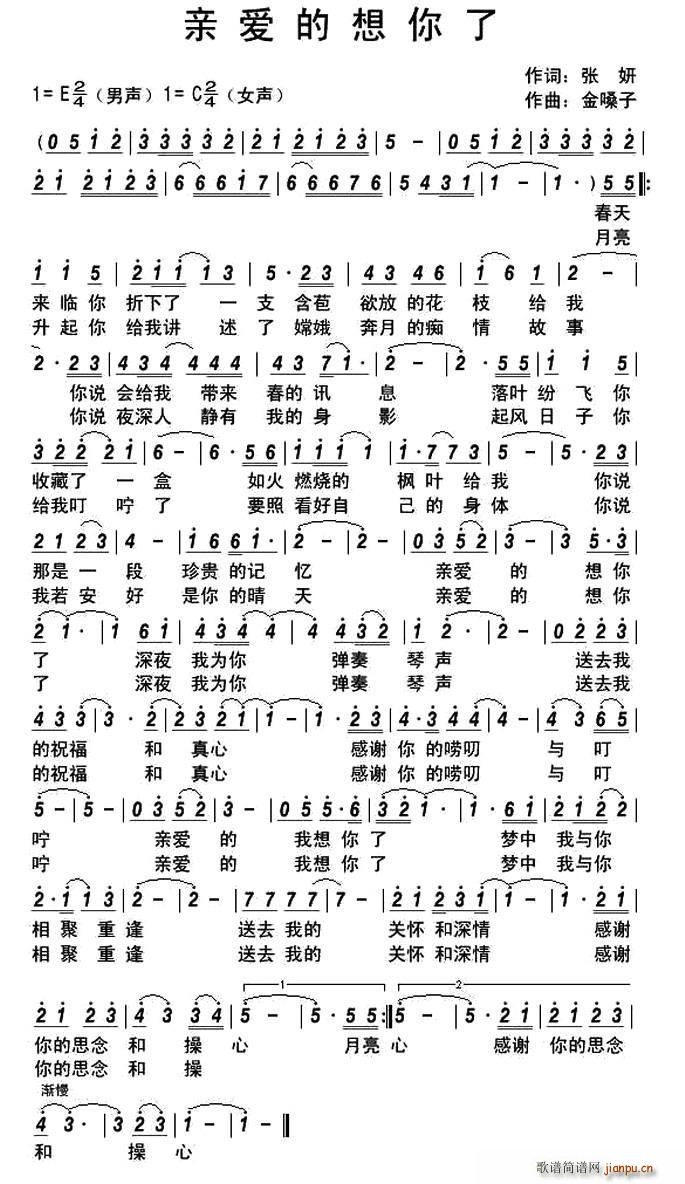 亲爱的想你了
1=E2/4（男声）1=C2/4（女声）
作词：张 妍
作曲：金嗓子
(0 5 1 2 | 3 3 3 3 2 | 2 1 2 1 2 3 | 5 - | 0 5 1 2 | 3 3 3 3 2 |
2 1 2 1 2 3 | 6 6 6 1 7 | 6 6 6 7 6 | 5 4 3 1 | 1 - | 1 · ) 5 5 ‖:
春天
月亮
1 1 5 | 2 1 1 1 3 | 5 · 2 3 | 4 3 4 6 | 1 6 1 | 2 - |
来临你 折下了 一支含苞 欲放的花 枝给我
升起你 给我讲 述了嫦娥 奔月的痴 情故事
2 · 2 3 | 4 3 4 4 4 4 | 4 3 7 1 | 2 - | 2 · 5 5 | 1 1 5 |
你说会给我 带来 春的讯 息 落叶纷飞你
你说夜深人 静有 我的身 影 起风日子你
3 2 2 2 1 | 6 - | 6 · 5 6 | 1 1 1 1 | 1 · 7 7 3 | 5 - | 5 · 2 3 |
收藏了 一盒 如火 燃烧的 枫叶给我 你说
给我叮 咛了 要照 看好自 己的身体 你说
2 1 2 3 | 4 - | 1 6 6 1 · | 2 - | 2 - | 0 3 5 2 | 3 - | 3 5 · 3 |
那是一段 珍贵的记忆 亲爱的 想你
我若安好 是你的晴天 亲爱的 想你
2 1 · | 1 6 1 | 4 3 4 4 | 4 4 3 2 | 1 2 · | 2 - | 0 2 2 3 |
了 深夜 我为你 弹奏 琴声 送去我
了 深夜 我为你 弹奏 琴声 送去我
4 3 3 | 3 · 2 | 2 3 2 1 | 1 - | 1 · 2 3 | 4 · 3 4 4 | 4 3 6 5 |
的祝福 和 真心 感谢你的唠叨 与叮
的祝福 和 真心 感谢你的唠叨 与叮
5 - | 5 - | 0 3 5 2 | 3 - | 0 5 5 · 6 | 3 2 1 · | 1 · 6 1 | 2 1 2 2 |
咛 亲爱的 我想你了 梦中我与你
咛 亲爱的 我想你了 梦中我与你
2 · 1 1 3 | 2 - | 2 - | 7 7 7 7 | 7 - | 2 1 2 3 1 | 1 - | 1 · 2 2 |
相聚重逢 送去我的 关怀和深情 感谢
相聚重逢 送去我的 关怀和深情 感谢
1
2
2 1 2 3 | 4 3 3 4 | 5 - | 5 · 5 5 :‖ 5 - | 5 · 2 1 | 2 1 2 3 |
你的思念 和操 心 月亮 心 感谢 你的思念
你的思念 和操
渐慢
4 3 · | 3 2 3 | 1 - | 1 - ‖
和 操 心
歌谱简谱网
jianpu.cn